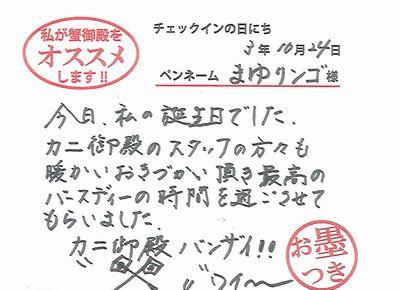 私が蟹御殿を
オススメ
します!!
チェックインの日にち
3年10月24日
ペンネーム まゆリンゴ様
今日、私の誕生日でした。
カニ御殿のスタッフの方々も
暖かいおきづかい頂き最高の
バースディーの時間を過ごさせて
もらいました。
カニ御殿 バンザイ!!
お墨
つき